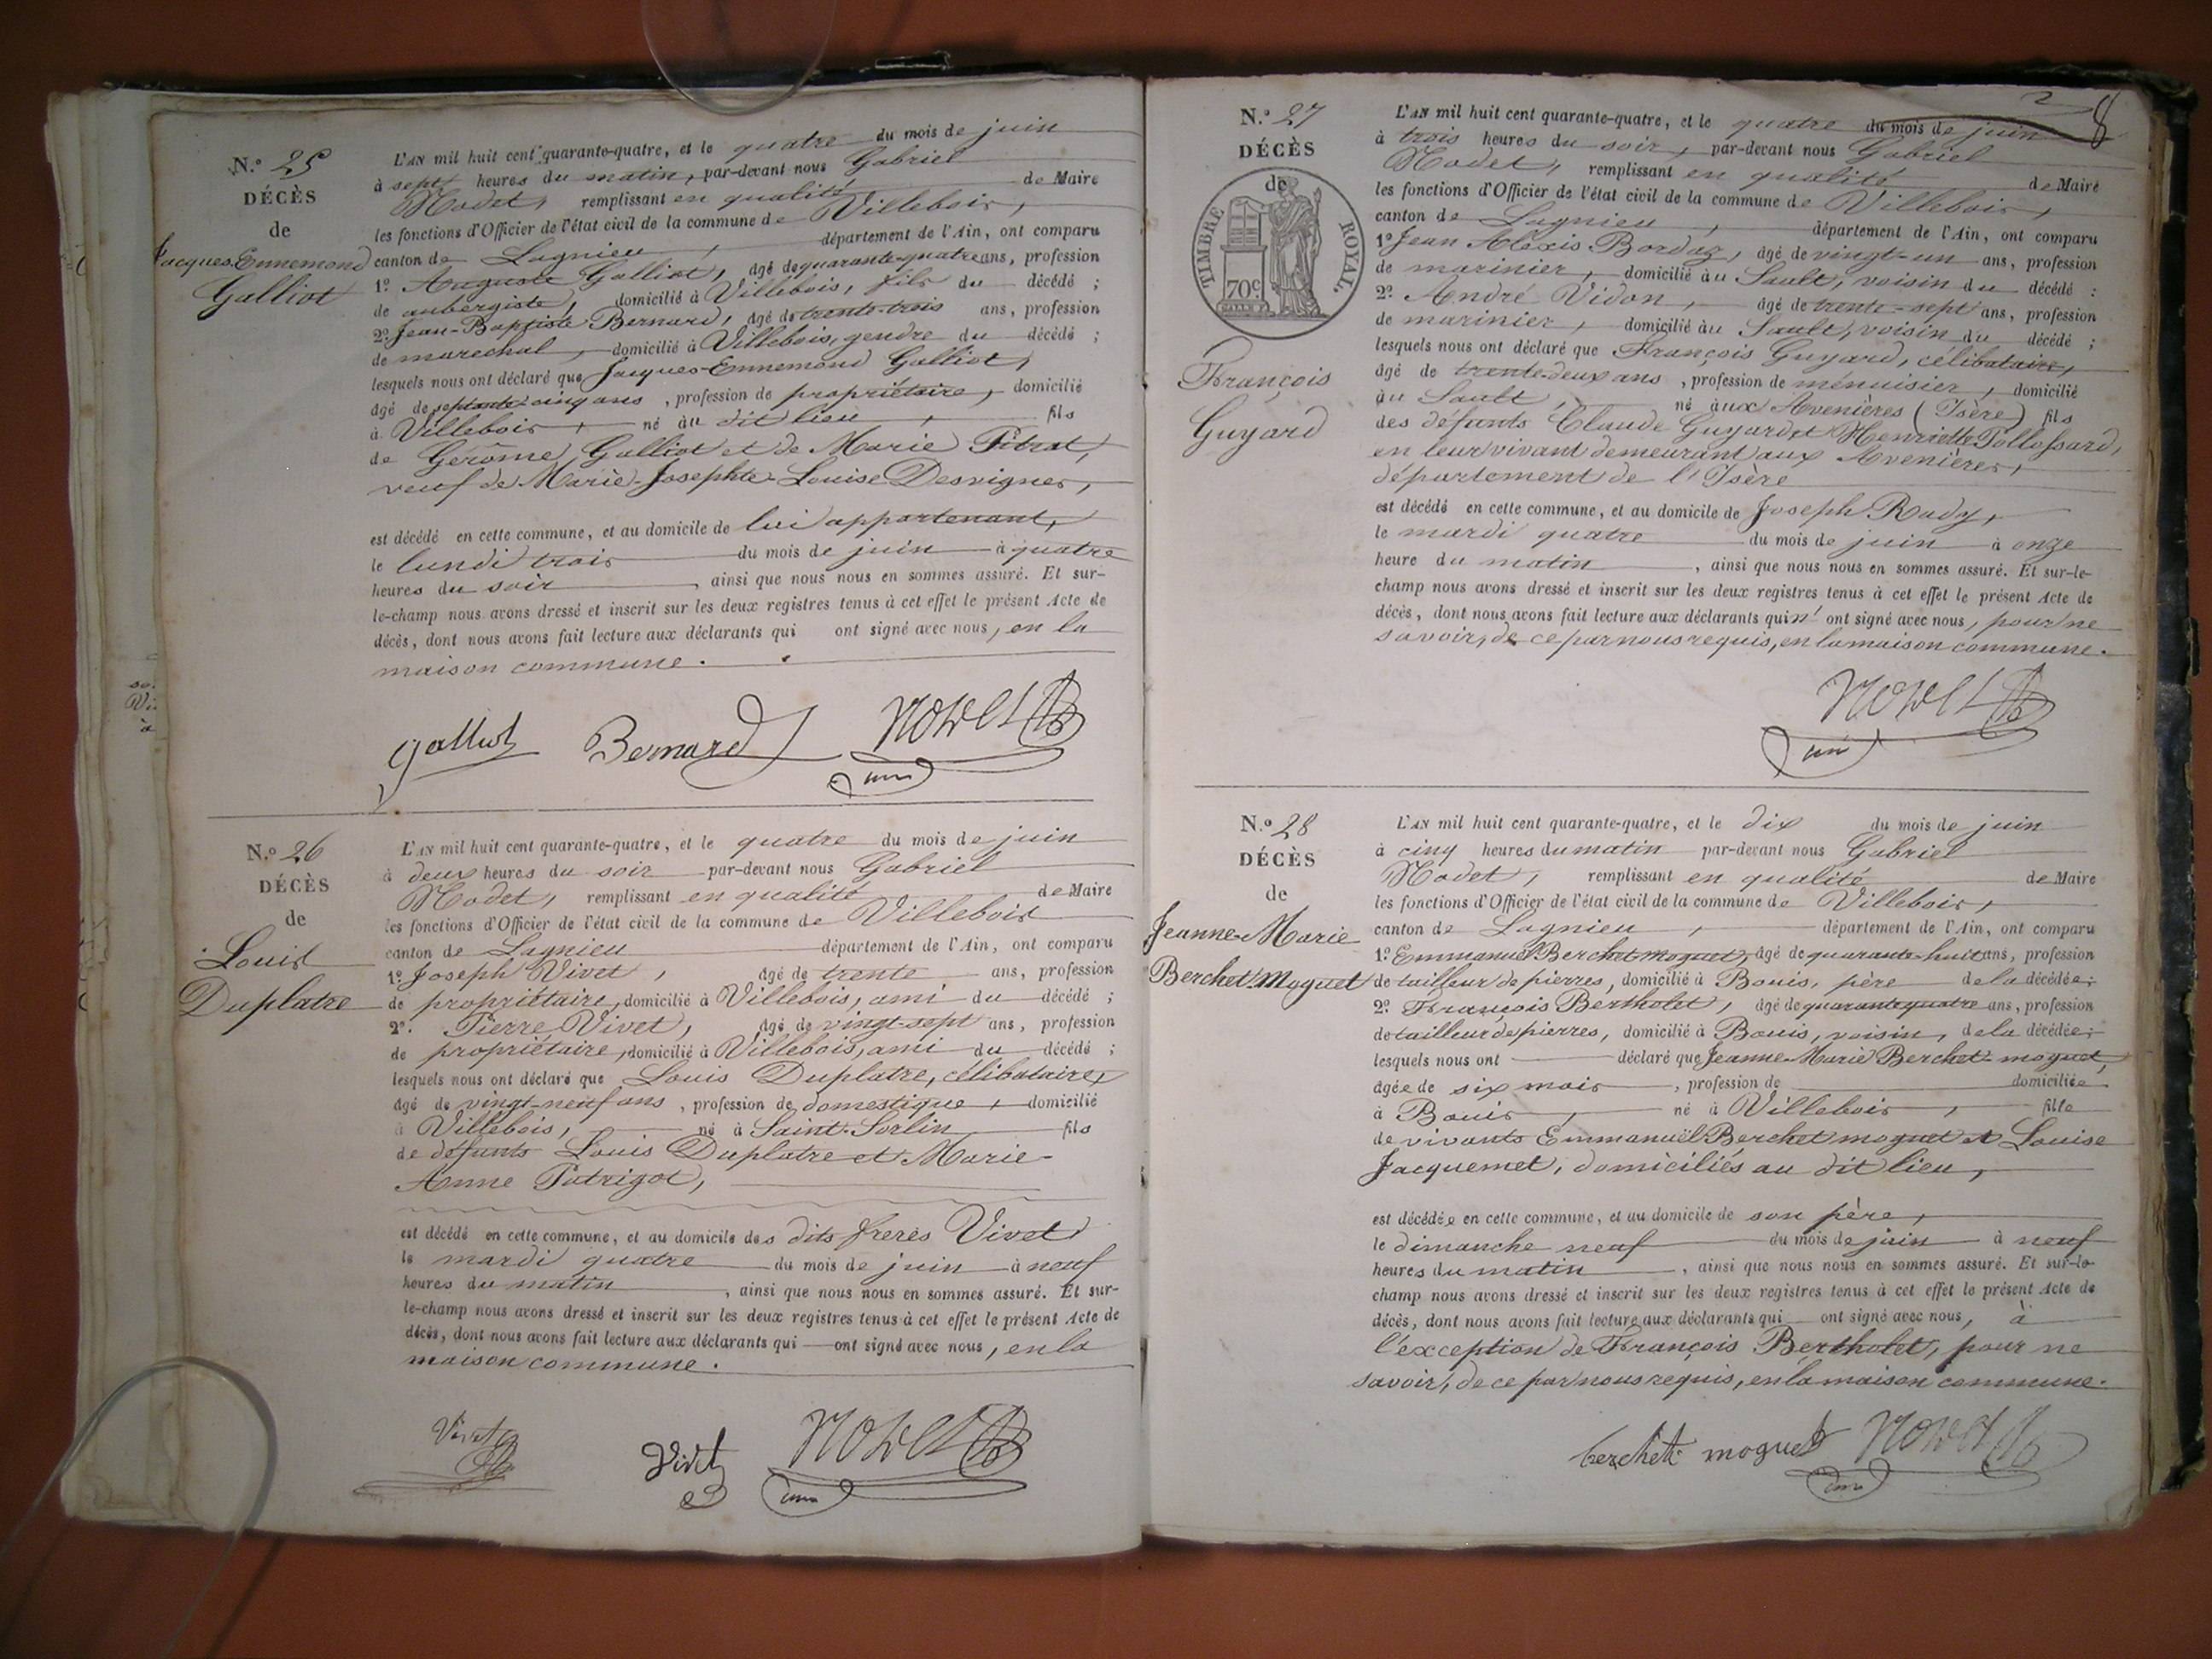 N.º 25
DÉCÈS
de
Jacques-Ennemond
Galliot
L'AN mil huit cent quarante-quatre, et le quatre du mois de juin
à sept heures du matin, par-devant nous Gabriel
Nodet, remplissant en qualité de Maire
les fonctions d'Officier de l'état civil de la commune de Villebois,
canton de Lagnieu, département de l'Ain, ont comparu
1º Auguste Galliot, âgé de quarante-quatre ans, profession
de aubergiste, domicilié à Villebois, fils du décédé ;
2º Jean-Baptiste Bernard, âgé de trente-trois ans, profession
de marechal, domicilié à Villebois, gendre du décédé ;
lesquels nous ont déclaré que Jacques-Ennemond Galliot,
âgé de septante-cinq ans, profession de propriétaire, domicilié
à Villebois, né au dit lieu, fils
de Gérôme Galliot et de Marie Pitrat,
veuf de Marie-Josephte-Louise Desvignes,
est décédé en cette commune, et au domicile de lui appartenant,
le lundi trois du mois de juin à quatre
heures du soir, ainsi que nous nous en sommes assuré. Et sur-
le-champ nous avons dressé et inscrit sur les deux registres tenus à cet effet le présent Acte de
décès, dont nous avons fait lecture aux déclarants qui ont signé avec nous, en la
maison commune.
Galliot Bernard Nodet
N.º 26
DÉCÈS
de
Louis
Duplatre
L'AN mil huit cent quarante-quatre, et le quatre du mois de juin
à deux heures du soir par-devant nous Gabriel
Nodet, remplissant en qualité de Maire
les fonctions d'Officier de l'état civil de la commune de Villebois
canton de Lagnieu département de l'Ain, ont comparu
1º Joseph Vivet, âgé de trente ans, profession
de propriétaire, domicilié à Villebois, ami du décédé ;
2º. Pierre Vivet, âgé de vingt-sept ans, profession
de propriétaire, domicilié à Villebois, ami du décédé ;
lesquels nous ont déclaré que Louis Duplatre, célibataire,
âgé de vingt-neuf ans, profession de domestique, domicilié
à Villebois, né à Saint-Sorlin fils
de défunts Louis Duplatre et Marie-
Anne Patrigot,
est décédé en cette commune, et au domicile des dits frères Vivet
le mardi quatre du mois de juin à neuf
heures du matin, ainsi que nous nous en sommes assuré. Et sur-
le-champ nous avons dressé et inscrit sur les deux registres tenus à cet effet le présent Acte de
décès, dont nous avons fait lecture aux déclarants qui ont signé avec nous, en la
maison commune.
Vivet Vivet Nodet
N.º 27
DÉCÈS
de
TIMBRE ROYAL.
70c.
François
Guyard
L'AN mil huit cent quarante-quatre, et le quatre du mois de juin
à trois heures du soir, par-devant nous Gabriel
Nodet, remplissant en qualité de Maire
les fonctions d'Officier de l'état civil de la commune de Villebois,
canton de Lagnieu, département de l'Ain, ont comparu
1º Jean Alexis Bordaz, âgé de vingt-un ans, profession
de marinier, domicilié au Sault, voisin du décédé :
2º. André Vidon, âgé de trente-sept ans, profession
de marinier, domicilié au Sault, voisin du décédé ;
lesquels nous ont déclaré que François Guyard, célibataire,
âgé de trente-deux ans, profession de ménuisier, domicilié
au Sault, né aux Avenières (Isère) fils
des défunts Claude Guyard et Henriette
en leur vivant demeurant aux Avenières,
département de l'Isère
est décédé en cette commune, et au domicile de Joseph Rudy,
le mardi quatre du mois de juin à onze
heure du matin, ainsi que nous nous en sommes assuré. Et sur-le-
champ nous avons dressé et inscrit sur les deux registres tenus à cet effet le présent Acte de
décès, dont nous avons fait lecture aux déclarants qui n'ont signé avec nous, pour ne
savoir, de ce par nous requis, en la maison commune.
Nodet
N.º 28
DÉCÈS
de
Jeanne-Marie
Berchet-Moguet
L'AN mil huit cent quarante-quatre, et le dix du mois de juin
à cinq heures du matin par-devant nous Gabriel
Nodet, remplissant en qualité de Maire
les fonctions d'Officier de l'état civil de la commune de Villebois,
canton de Lagnieu, département de l'Ain, ont comparu
1º. Emmanuel Berchet-moguet, âgé de quarante-huit ans, profession
de tailleur de pierres, domicilié à Bouis, père de la décédée ;
2º. François Bertholet, âgé de quarante quatre ans, profession
de tailleur de pierres, domicilié à Bouis, voisin, de la décédée ;
lesquels nous ont déclaré que Jeanne-Marie Berchet-moguet,
âgée de six mois, profession de domiciliée
à Bouis, né à Villebois, fille
de vivants Emmanuël Berchet moguet et Louise
Jacquemet, domiciliés au dit lieu,
est décédée en cette commune, et au domicile de son père,
le dimanche neuf du mois de juin à neuf
heures du matin, ainsi que nous nous en sommes assuré. Et sur-le-
champ nous avons dressé et inscrit sur les deux registres tenus à cet effet le présent Acte de
décès, dont nous avons fait lecture aux déclarants qui ont signé avec nous, à
l'éxception de François Bertholet, pour ne
savoir, de ce par nous requis, en la maison commune.
berchet moguet Nodet